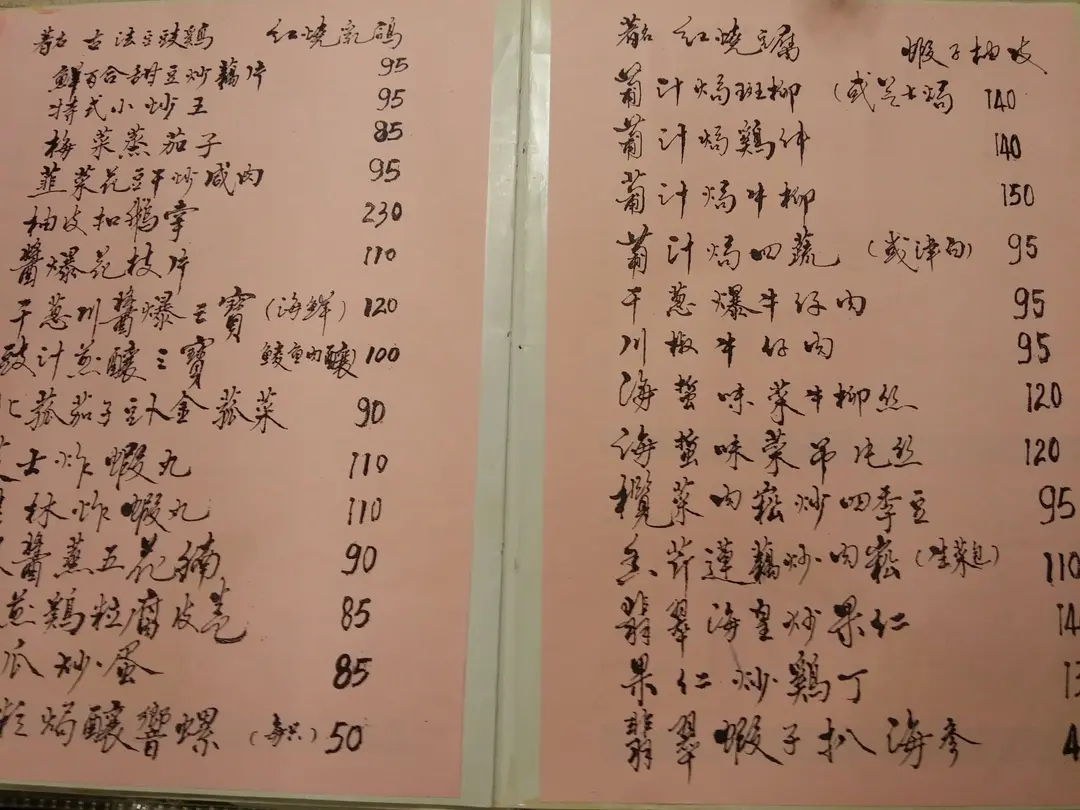 著名 古法豆豉鷄 紅燒乳鴿
鮮百合甜豆炒藕片 95
特式小炒王 95
梅菜蒸茄子 85
韮菜花豆干炒咸肉 95
柚皮扣鵝掌 230
醬爆花枝片 110
干葱川醬爆三寶 (海鮮) 120
豉汁煎釀三寶 鯪魚肉釀) 100
菰茄子豆卜金菰菜 90
士炸蝦丸 110
林炸蝦丸 110
醬蒸五花腩 90
煎鷄粒腐皮卷 85
瓜炒蛋 85
焗釀響螺 (每只) 50
著名 紅燒豆腐 蝦子柚皮
葡汁焗斑柳 (或芝士焗 140
葡汁焗鷄件 140
葡汁焗牛柳 150
葡汁焗四蔬 (或津白) 95
干葱爆牛仔肉 95
川椒牛仔肉 95
海蜇味菜牛柳絲 120
海蜇味菜吊片絲 120
欖菜肉崧炒四季豆 95
香芹蓮藕炒肉崧 (生菜包) 110
翡翠海皇炒果仁 14
果仁炒鷄丁 13
翡翠蝦子扒海參 4